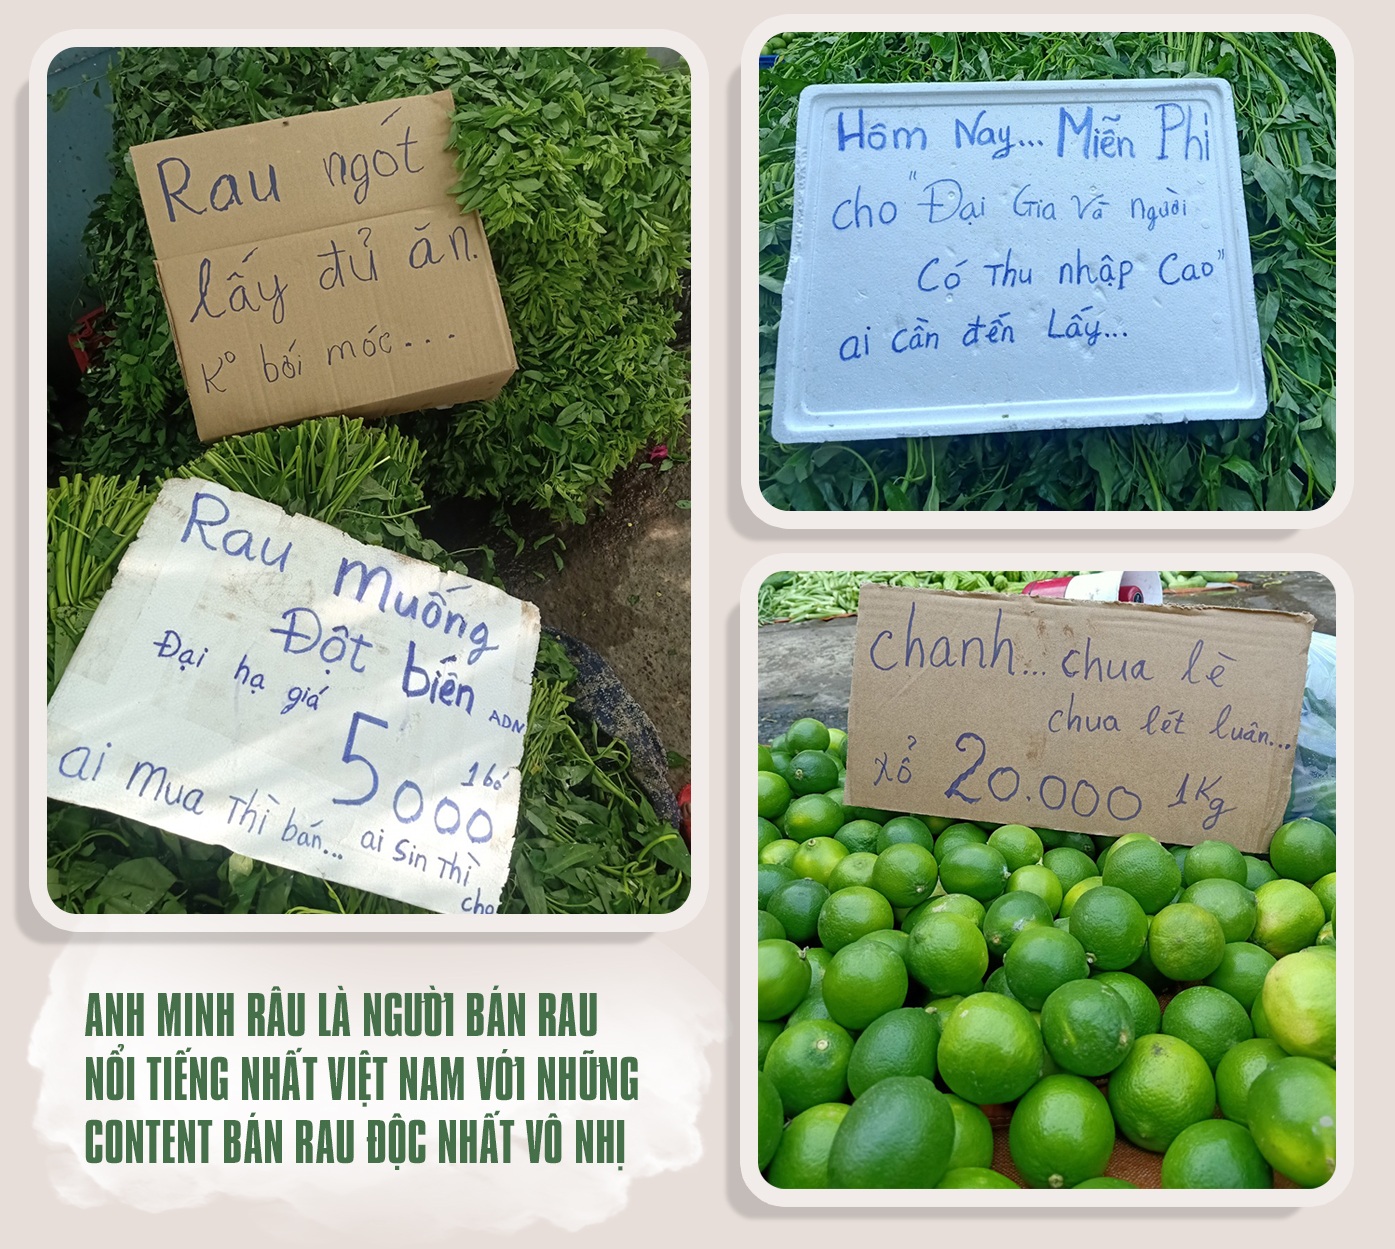 Rau ngót
lấy đủ ăn.
K° bới móc...
Rau muống
Đột biến ADN
Đại hạ giá
5000 1 bó
ai mua Thì bán... ai Sin Thì
cho
Hôm Nay... Miễn Phì
cho "Đại Gia Và người
Có Thu nhập Cao"
ai cần đến Lấy...
chanh... chua lè
chua lét luân...
xổ 20.000 1Kg
ANH MINH RÂU LÀ NGƯỜI BÁN RAU
NỔI TIẾNG NHẤT VIỆT NAM VỚI NHỮNG
CONTENT BÁN RAU ĐỘC NHẤT VÔ NHỊ